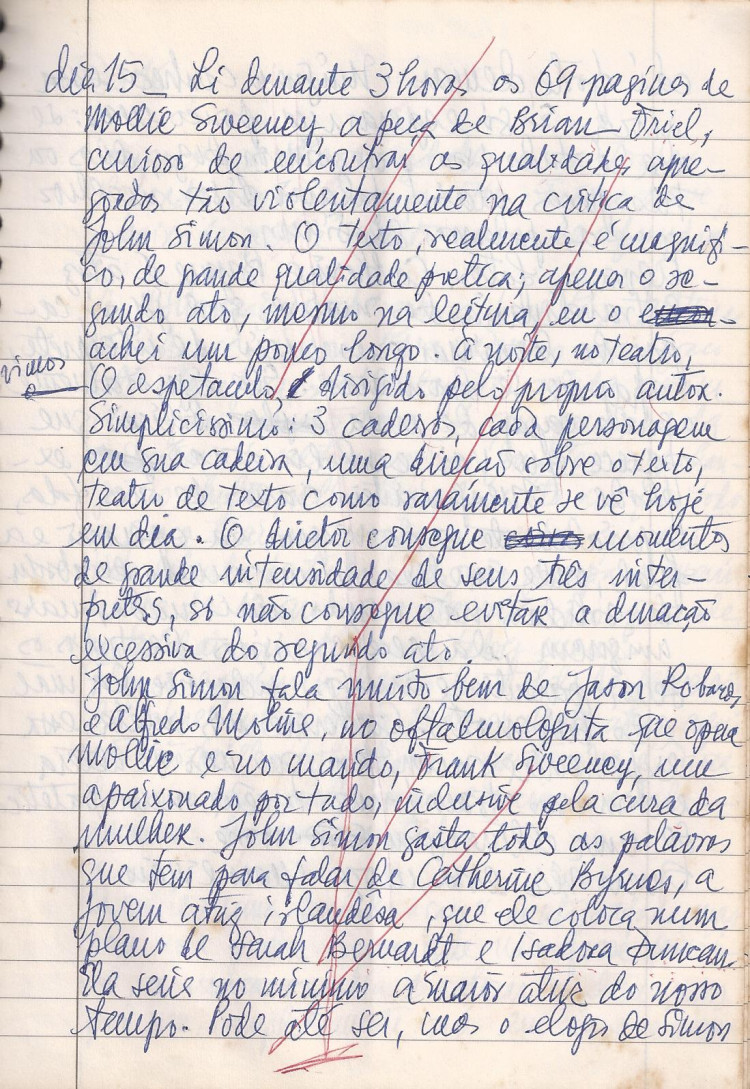 dia 15 – Li durante 3 horas as 69 paginas de
Mollie Sweeney, a peça de Brian Friel,
curioso de encontrar as qualidades apre-
goadas tão violentamente na critica de
John Simon. O texto, realmente, é magnifi-
co, de grande qualidade poetica; apenas o se-
gundo ato, mesmo na leitura, eu o
achei um pouco longo. à noite, no teatro,
vimos
O espetaculo, dirigido pelo proprio autor.
Simplicissimo: 3 cadeiras, cada personagem
em sua cadeira, uma direcão sobre o texto,
teatro de texto como raramente se vê hoje
em dia. O diretor consegue momentos
de grande intensidade de seus três inter-
pretes, só não consegue evitar a duração
excessiva do segundo ato.
John Simon fala muito bem de Jason Robards,
e Alfredo Moline, no oftalmologista que opera
Mollie e no marido, Frank Sweeney, um
apaixonado por tudo, inclusive pela cura da
mulher. John Simon gasta todas as palavras
que tem para falar de Catherine Byrnes, a
jovem atriz irlandêsa, que ele coloca num
plano de Sarah Bernardt e Isadora Duncan.
Ela seria no minimo a maior atriz do nosso
tempo. Pode até ser, mas o elogio de Simon